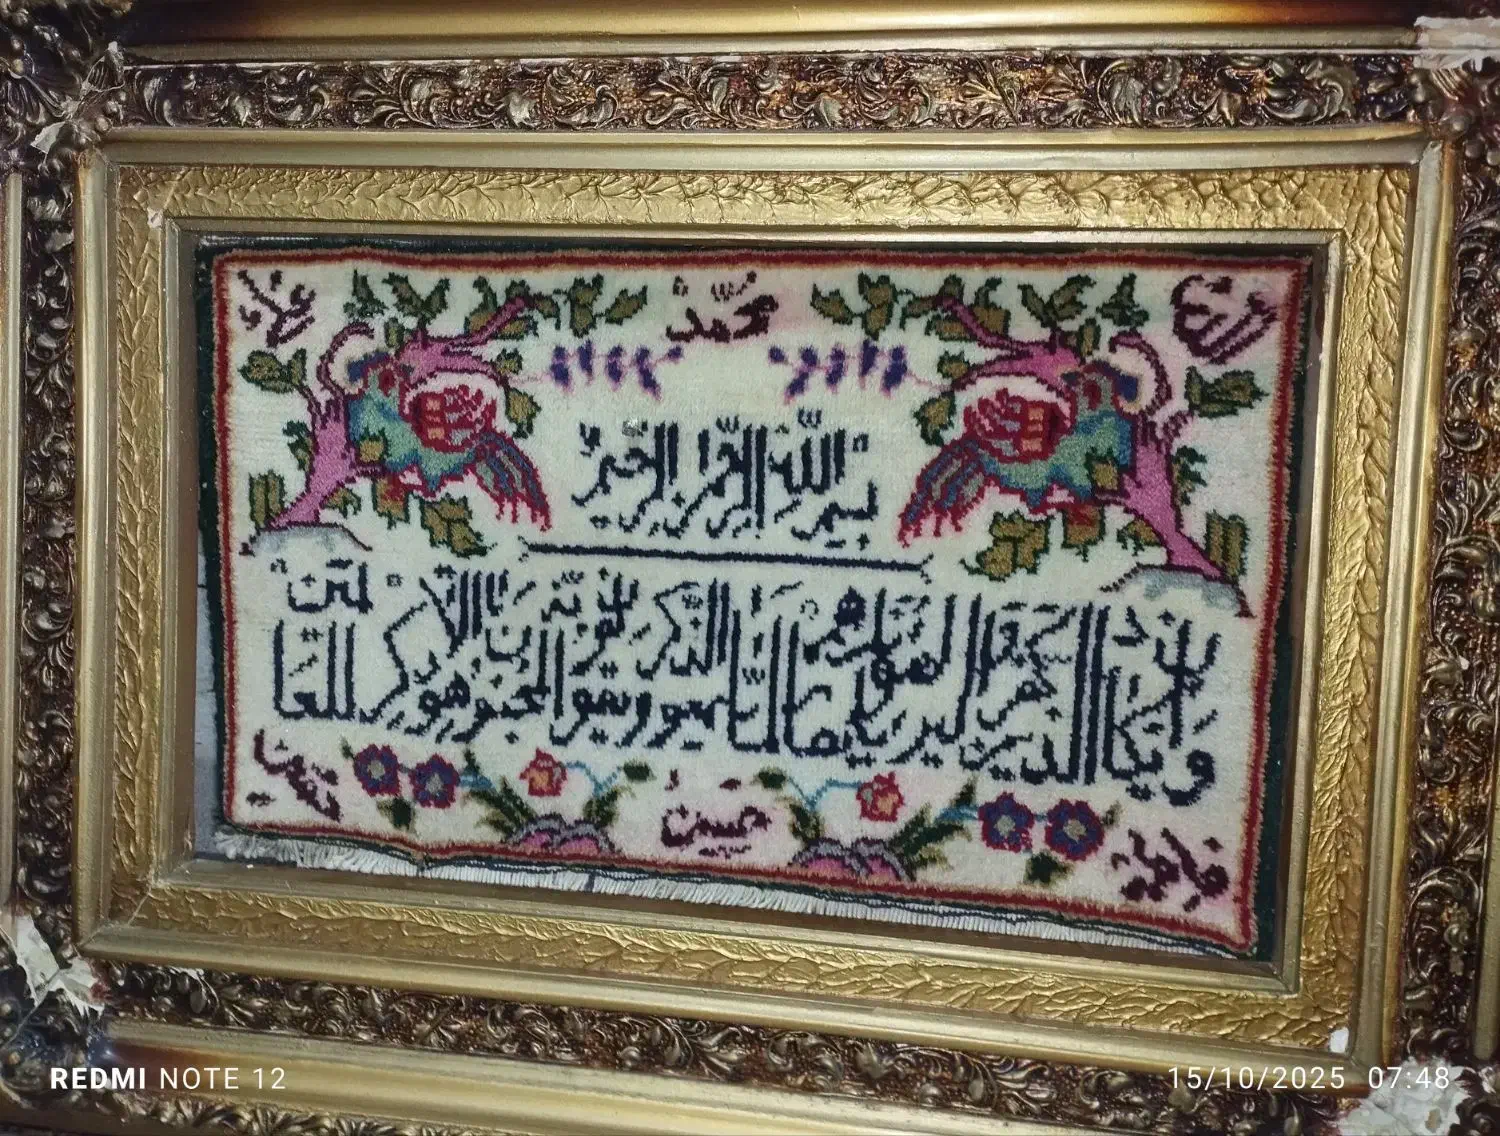 الله محمد علي
بسم الله الرحمن الرحيم
وإن يكاد الذين كفروا ليزلقونك بأبصارهم لما سمعوا الذكر ويقولون إنه لمجنون وما هو إلا ذكر للعالمين
فاطمه حسين حسن
REDMI NOTE 12
15/10/2025 07:48